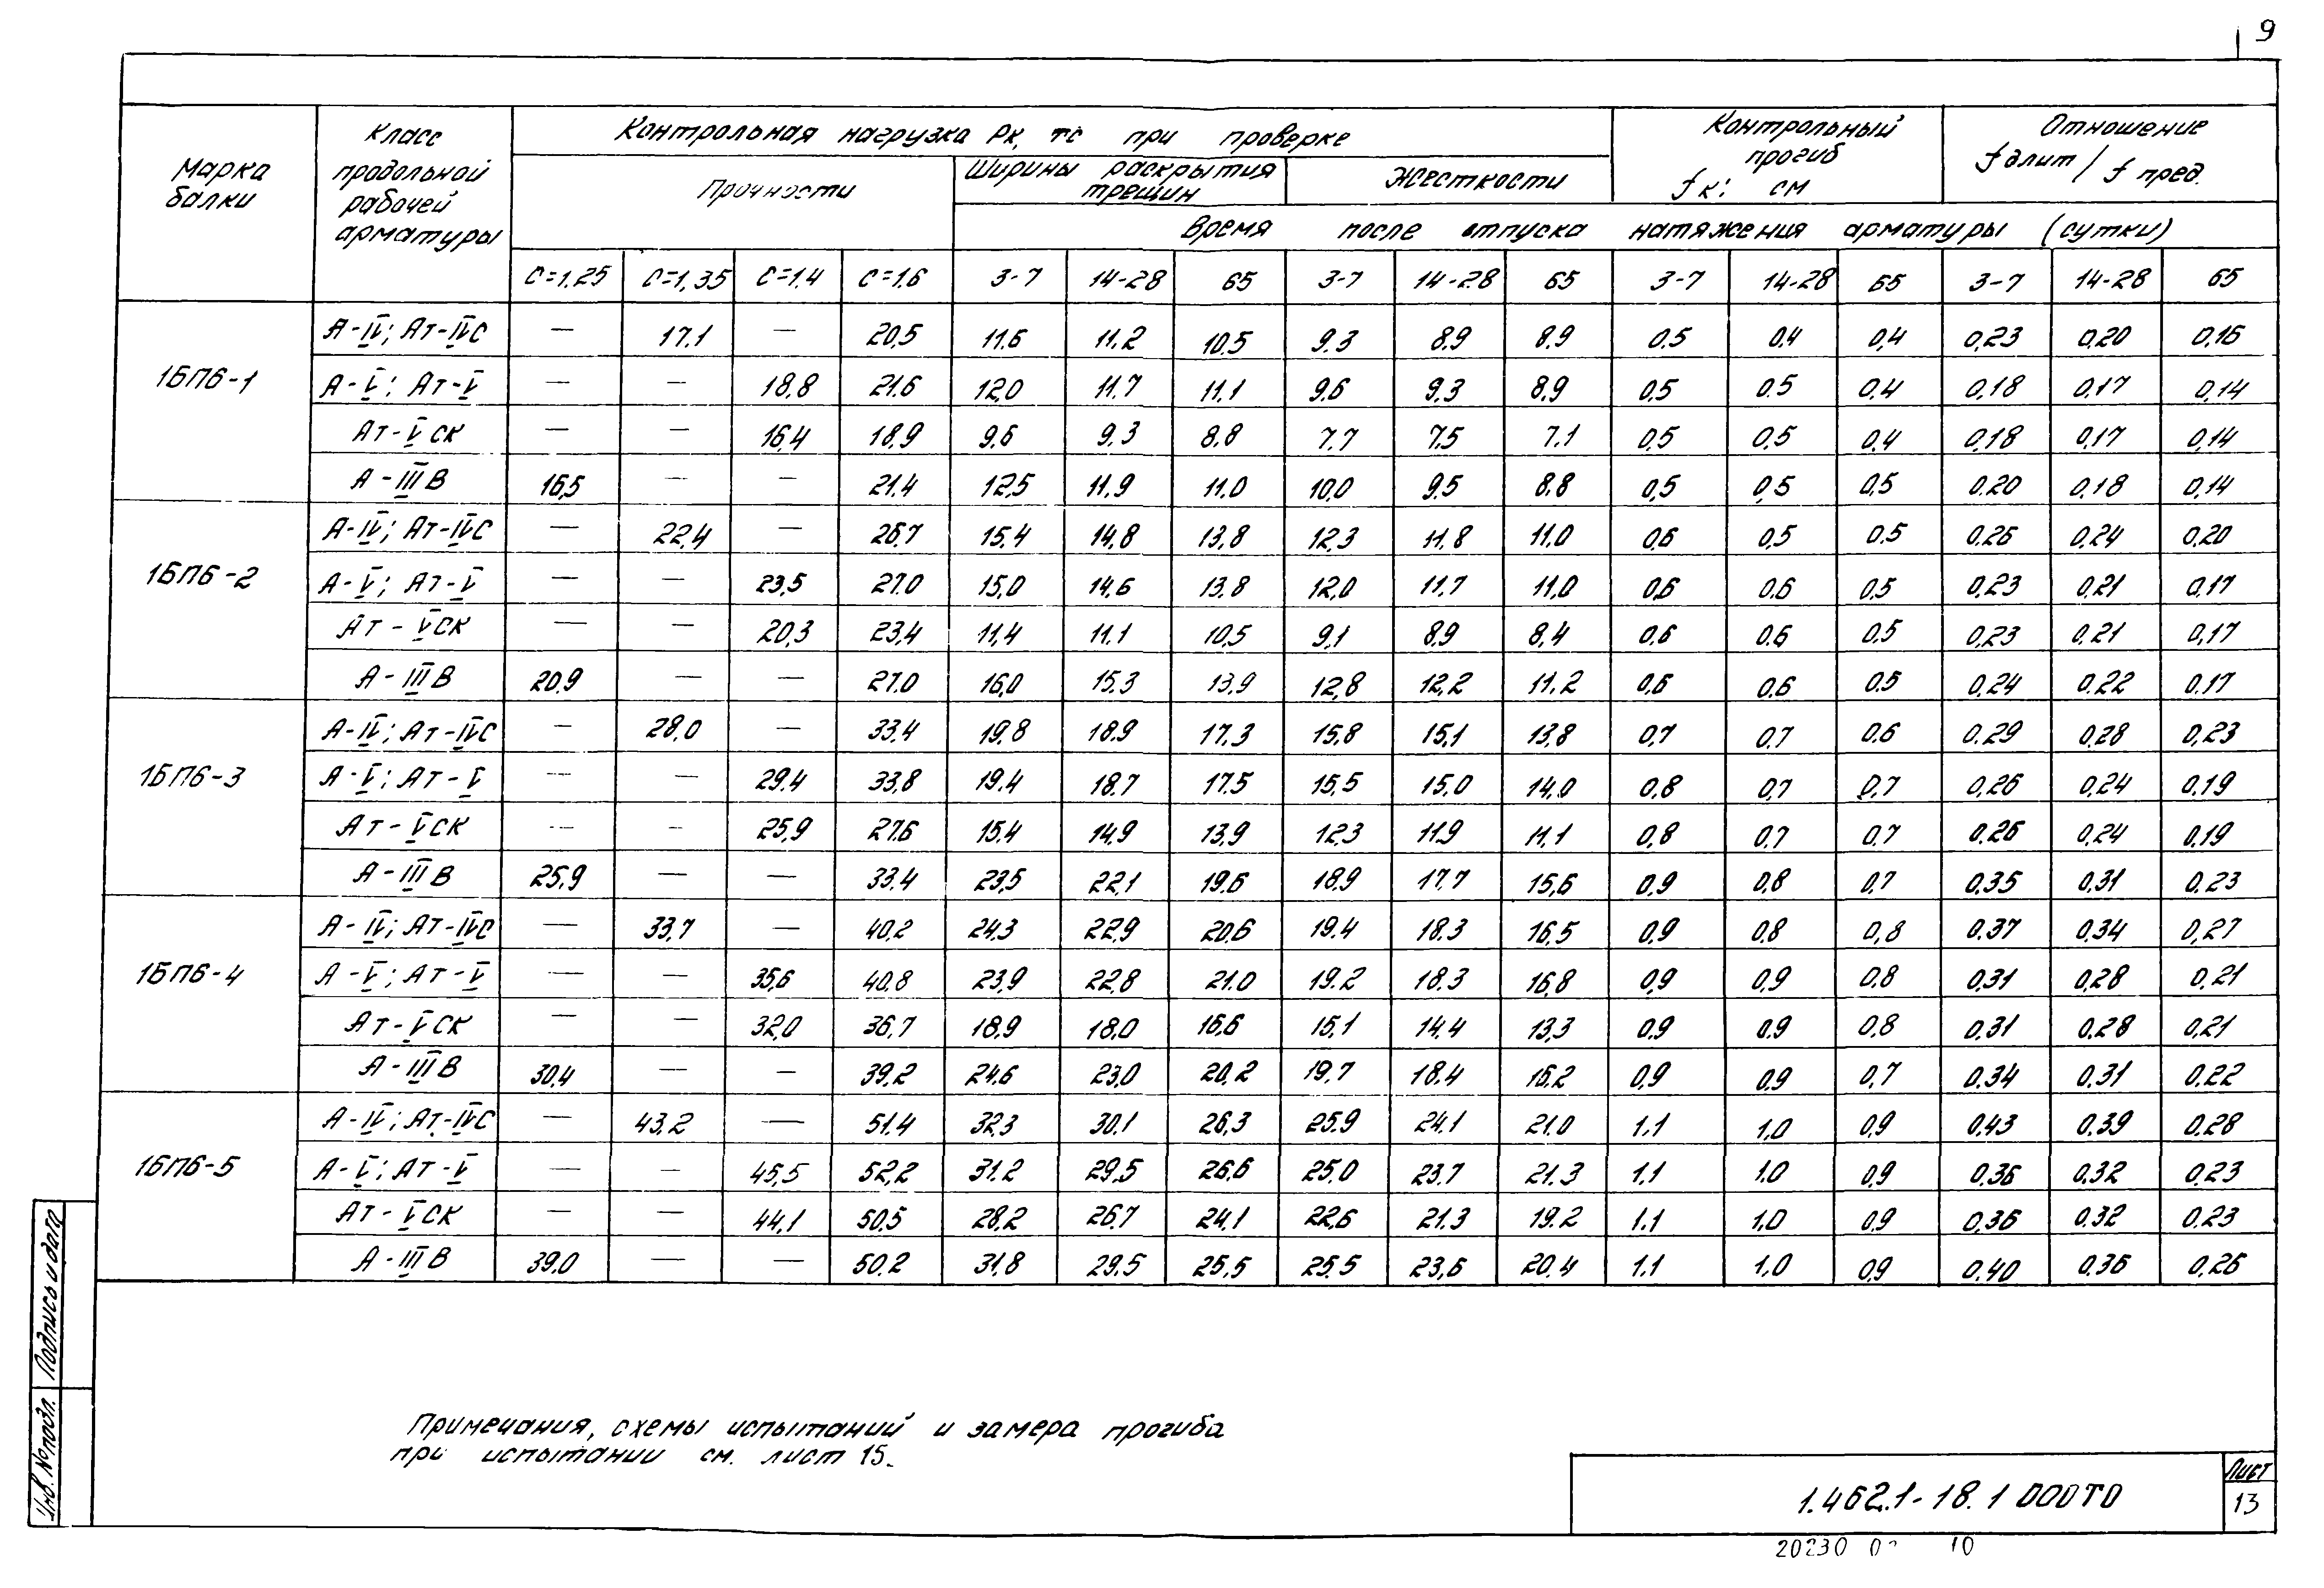 9
Марка балки
Класс продольной рабочей арматуры
Контрольная нагрузка Рк, тс при проверке
Контрольный прогиб fк; см
Отношение fдлит / f пред.
Прочности
Ширины раскрытия трещин
Жесткости
Время после отпуска натяжения арматуры (сутки)
С=1,25 С=1,35 С=1,4 С=1,6 3-7 14-28 65 3-7 14-28 65 3-7 14-28 65 3-7 14-28 65
1БП6-1
А-IV; Ат-IVС — 17.1 — 20,5 11.6 11.2 10.5 9.3 8.9 8.9 0.5 0,4 0,4 0,23 0,20 0,16
А-V; Ат-V — — 18,8 21.6 12,0 11.7 11.1 9.6 9.3 8,9 0,5 0.5 0.4 0,18 0,17 0,14
Ат-VСК — — 16,4 18,9 9.6 9.3 8.8 7.7 7.5 7.1 0,5 0,5 0.4 0,18 0,17 0,14
А-IIIВ 16,5 — — 21.4 12,5 11.9 11.0 10,0 9.5 8.8 0,5 0,5 0,5 0.20 0,18 0,14
1БП6-2
А-IV; Ат-IVС — 22,4 — 26,7 15.4 14,8 13,8 12,3 11,8 11,0 0,6 0,5 0.5 0.26 0.24 0,20
А-V; Ат-V — — 23,5 27.0 15,0 14,6 13.8 12,0 11.7 11,0 0,6 0.6 0.5 0,23 0,21 0,17
Ат-VСК — — 20,3 23,4 11,4 11.1 10,5 9,1 8,9 8,4 0,6 0,6 0.5 0,23 0,21 0,17
А-IIIВ 20,9 — — 27.0 16,0 15.3 13,9 12,8 12,2 11.2 0,6 0,6 0.5 0,24 0.22 0.17
1БП6-3
А-IV; Ат-IVС — 28,0 — 33.4 19,8 18.9 17.3 15,8 15,1 13,8 0,7 0.7 0.6 0.29 0,28 0,23
А-V; Ат-V — — 29.4 33,8 19.4 18.7 17.5 15,5 15,0 14,0 0,8 0,7 0,7 0,26 0,24 0,19
Ат-VСК — — 25,9 27.6 15.4 14,9 13,9 12,3 11.9 11,1 0,8 0,7 0.7 0.26 0,24 0,19
А-IIIВ 25,9 — — 33.4 23,5 22,1 19.6 18,9 17.7 15,6 0,9 0,8 0,7 0.35 0,31 0.23
1БП6-4
А-IV; Ат-IVС — 33,7 — 40.2 24.3 22.9 20.6 19.4 18.3 16,5 0,9 0.8 0,8 0.37 0,34 0,27
А-V; Ат-V — — 35,6 40.8 23,9 22.8 21.0 19.2 18.3 16,8 0,9 0,9 0,8 0,31 0,28 0,21
Ат-VСК — — 32,0 36,7 18,9 18,0 16,6 15,1 14.4 13,3 0,9 0,9 0,8 0.31 0.28 0,21
А-IIIВ 30,4 — — 39,2 24.6 23,0 20,2 19,7 18.4 16.2 0,9 0,9 0,7 0.34 0,31 0.22
1БП6-5
А-IV; Ат-IVС — 43,2 — 51.4 32,3 30.1 26,3 25.9 24.1 21.0 1.1 1,0 0,9 0,43 0,39 0.28
А-V; Ат-V — — 45,5 52,2 31.2 29,5 26,6 25.0 23.7 21.3 1.1 1.0 0,9 0.36 0,32 0,23
Ат-VСК — — 44,1 50.5 28,2 26.7 24.1 22,6 21.3 19.2 1.1 1,0 0.9 0,36 0.32 0.23
А-IIIВ 39.0 — — 50.2 31,8 29.5 25,5 25.5 23,6 20.4 1.1 1,0 0,9 0.40 0.36 0,26
Примечания, схемы испытаний и замера прогиба
при испытании см. лист 15.
1.462.1-18.1 000ТО
Лист
13
Инв. № подл. Подпись и дата
20230 10